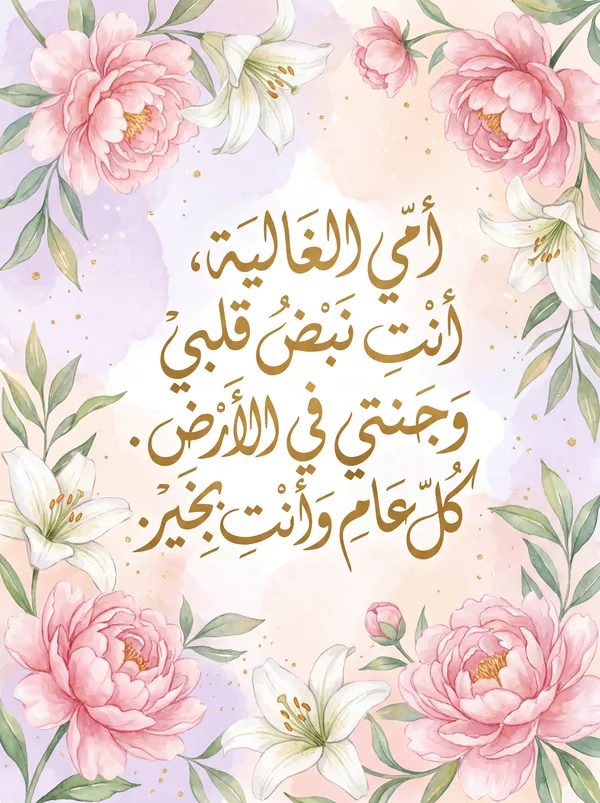 أمّي الغَاليَة،
أنْتِ نَبْضُ قلبيْ
وَجَنتي في الأَرْض.
كُلّ عَامِ وَأنْتِ بِخَيْر.